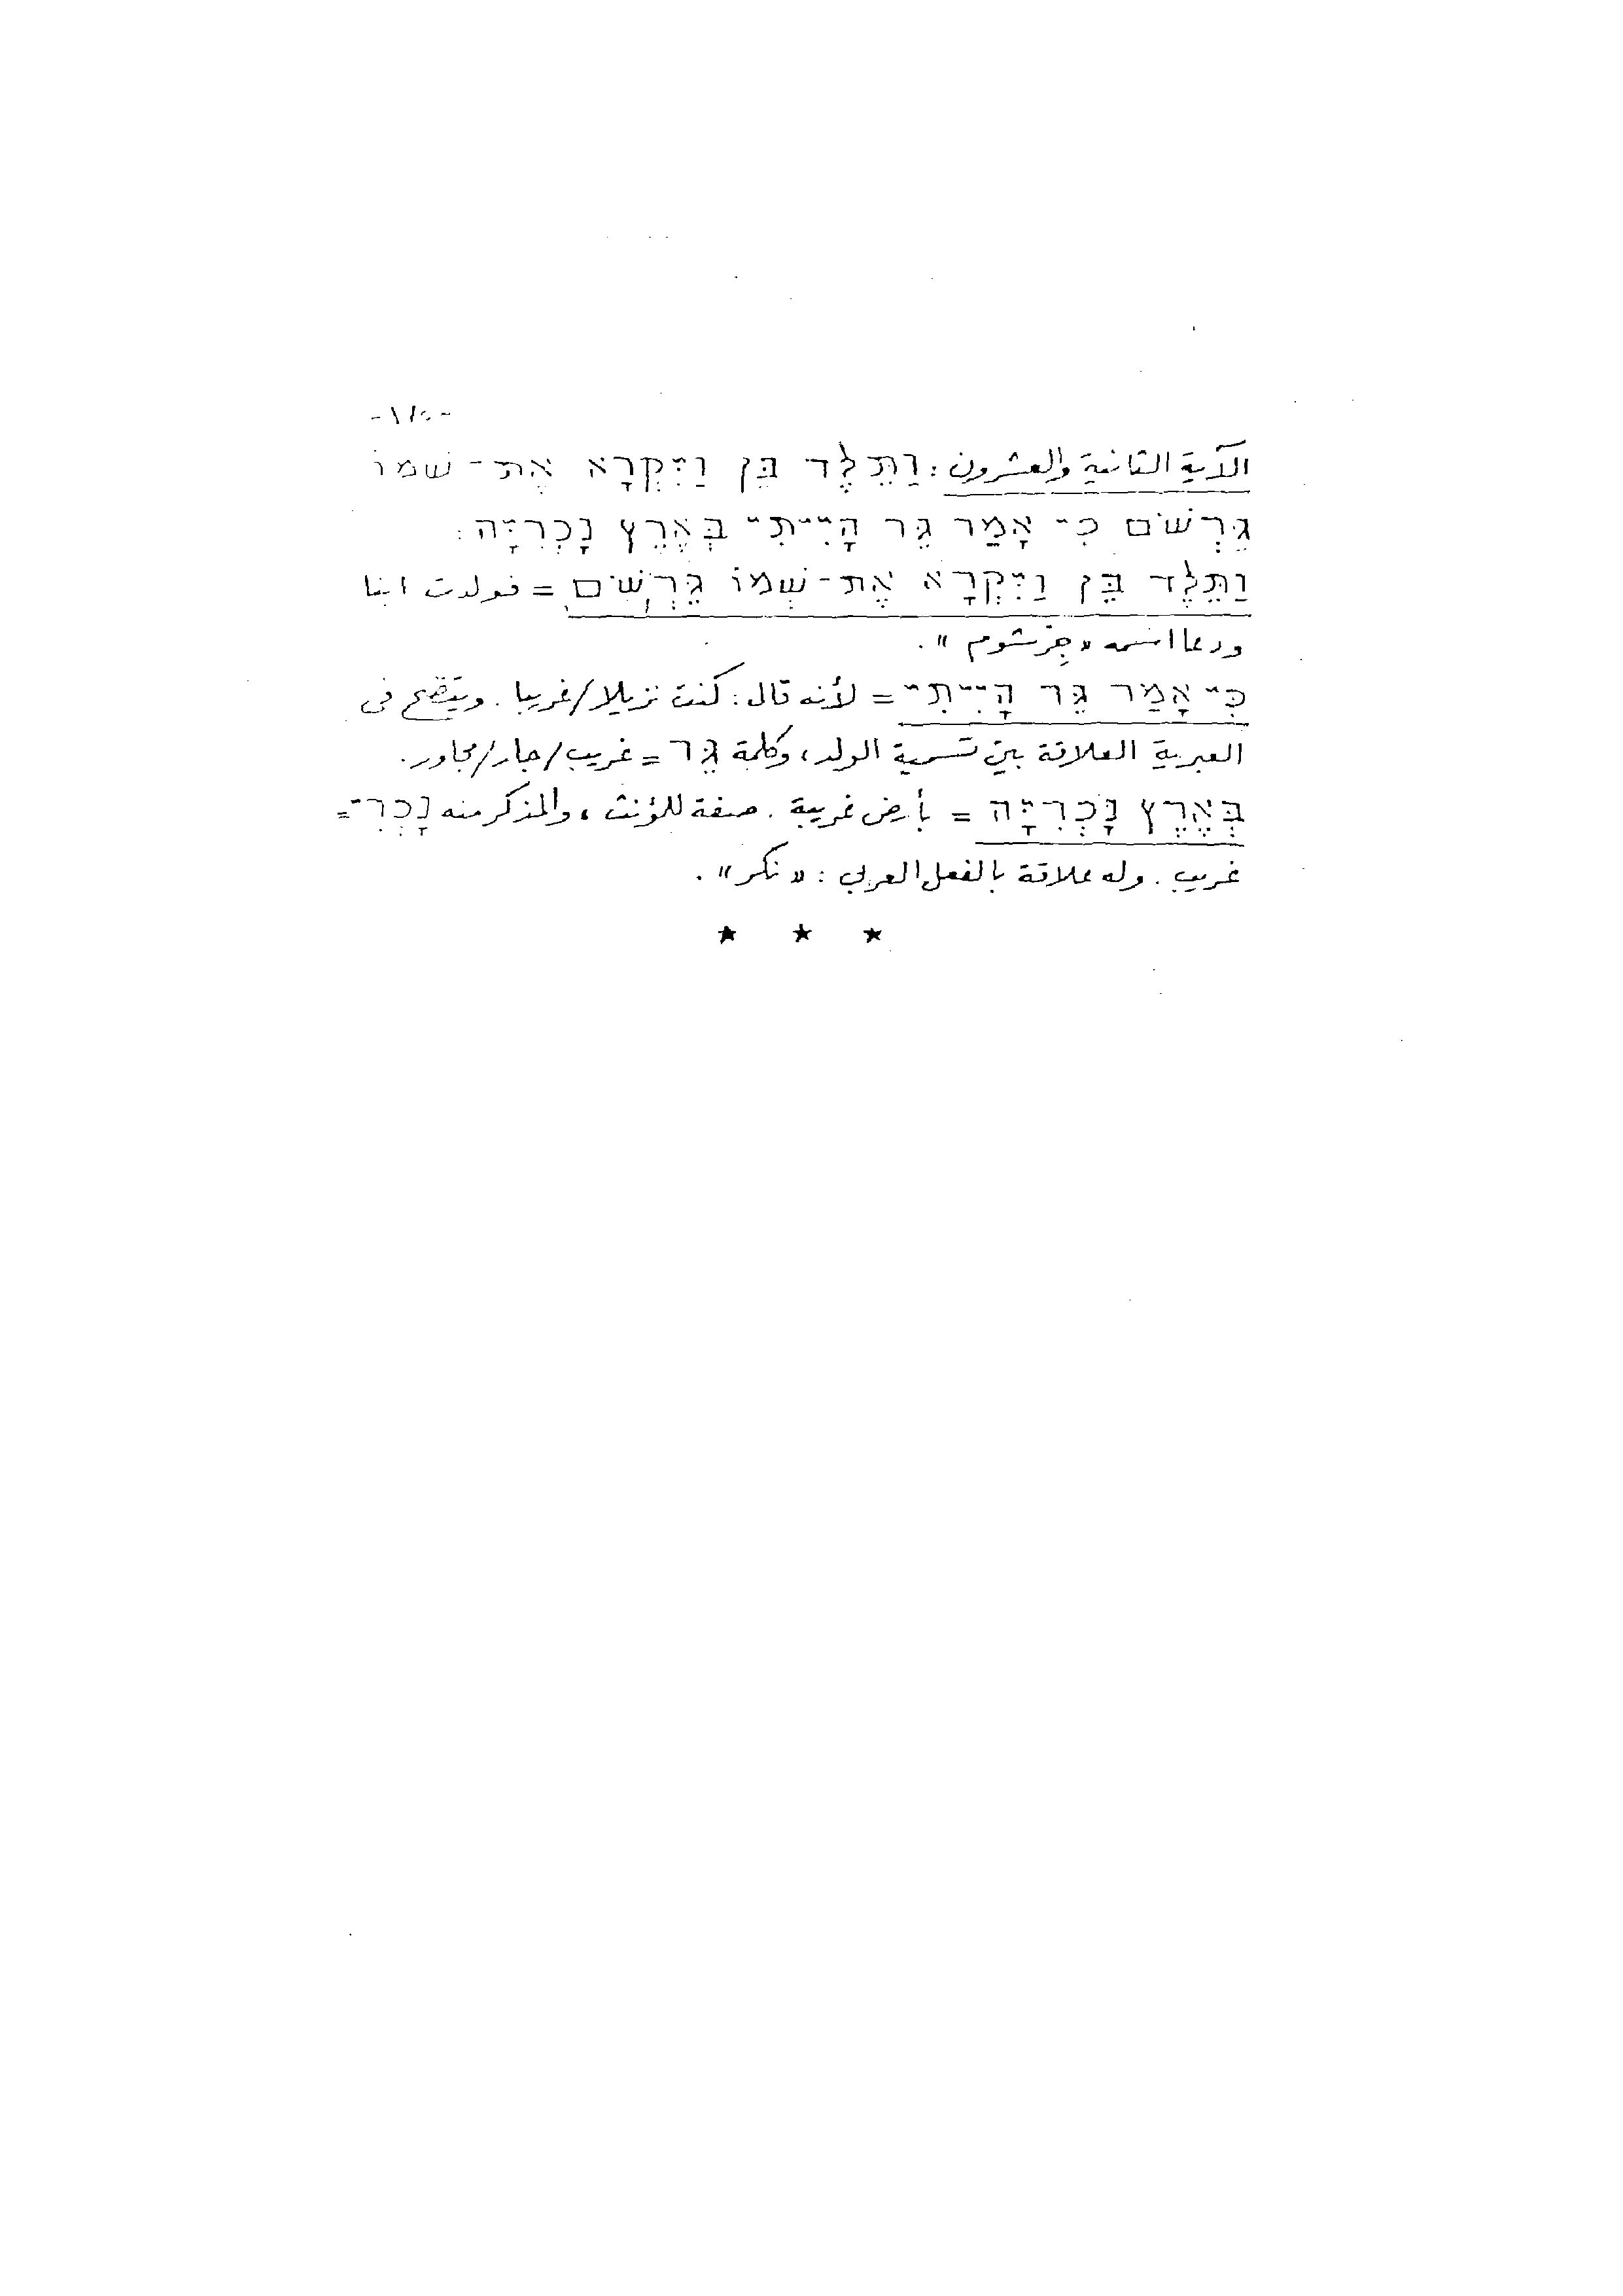 الآية الثانية والعشرون: וַתֵּלֶד בֵּן וַיִּקְרָא אֶת־שְׁמוֹ
גֵּרְשֹׁם כִּי אָמַר גֵּר הָיִיתִי בְּאֶרֶץ נָכְרִיָּה:
וַתֵּלֶד בֵּן וַיִּקְרָא אֶת־שְׁמוֹ גֵּרְשֹׁם = فولدت ابنا
ودعا اسمه «جِرْشوم».
כִּי אָמַר גֵּר הָיִיתִי = لأنه قال: كنت نزيلا/غريبا. ويتضح في
العبرية العلاقة بين تسمية الولد، وكلمة גֵּר = غريب/جار/مجاور.
בְּאֶרֶץ נָכְרִיָּה = بأرض غريبة. صفة للمؤنث، والمذكر منه נָכְרִי =
غريب. وله علاقة بالفعل العربي: «نكر».
★ ★ ★